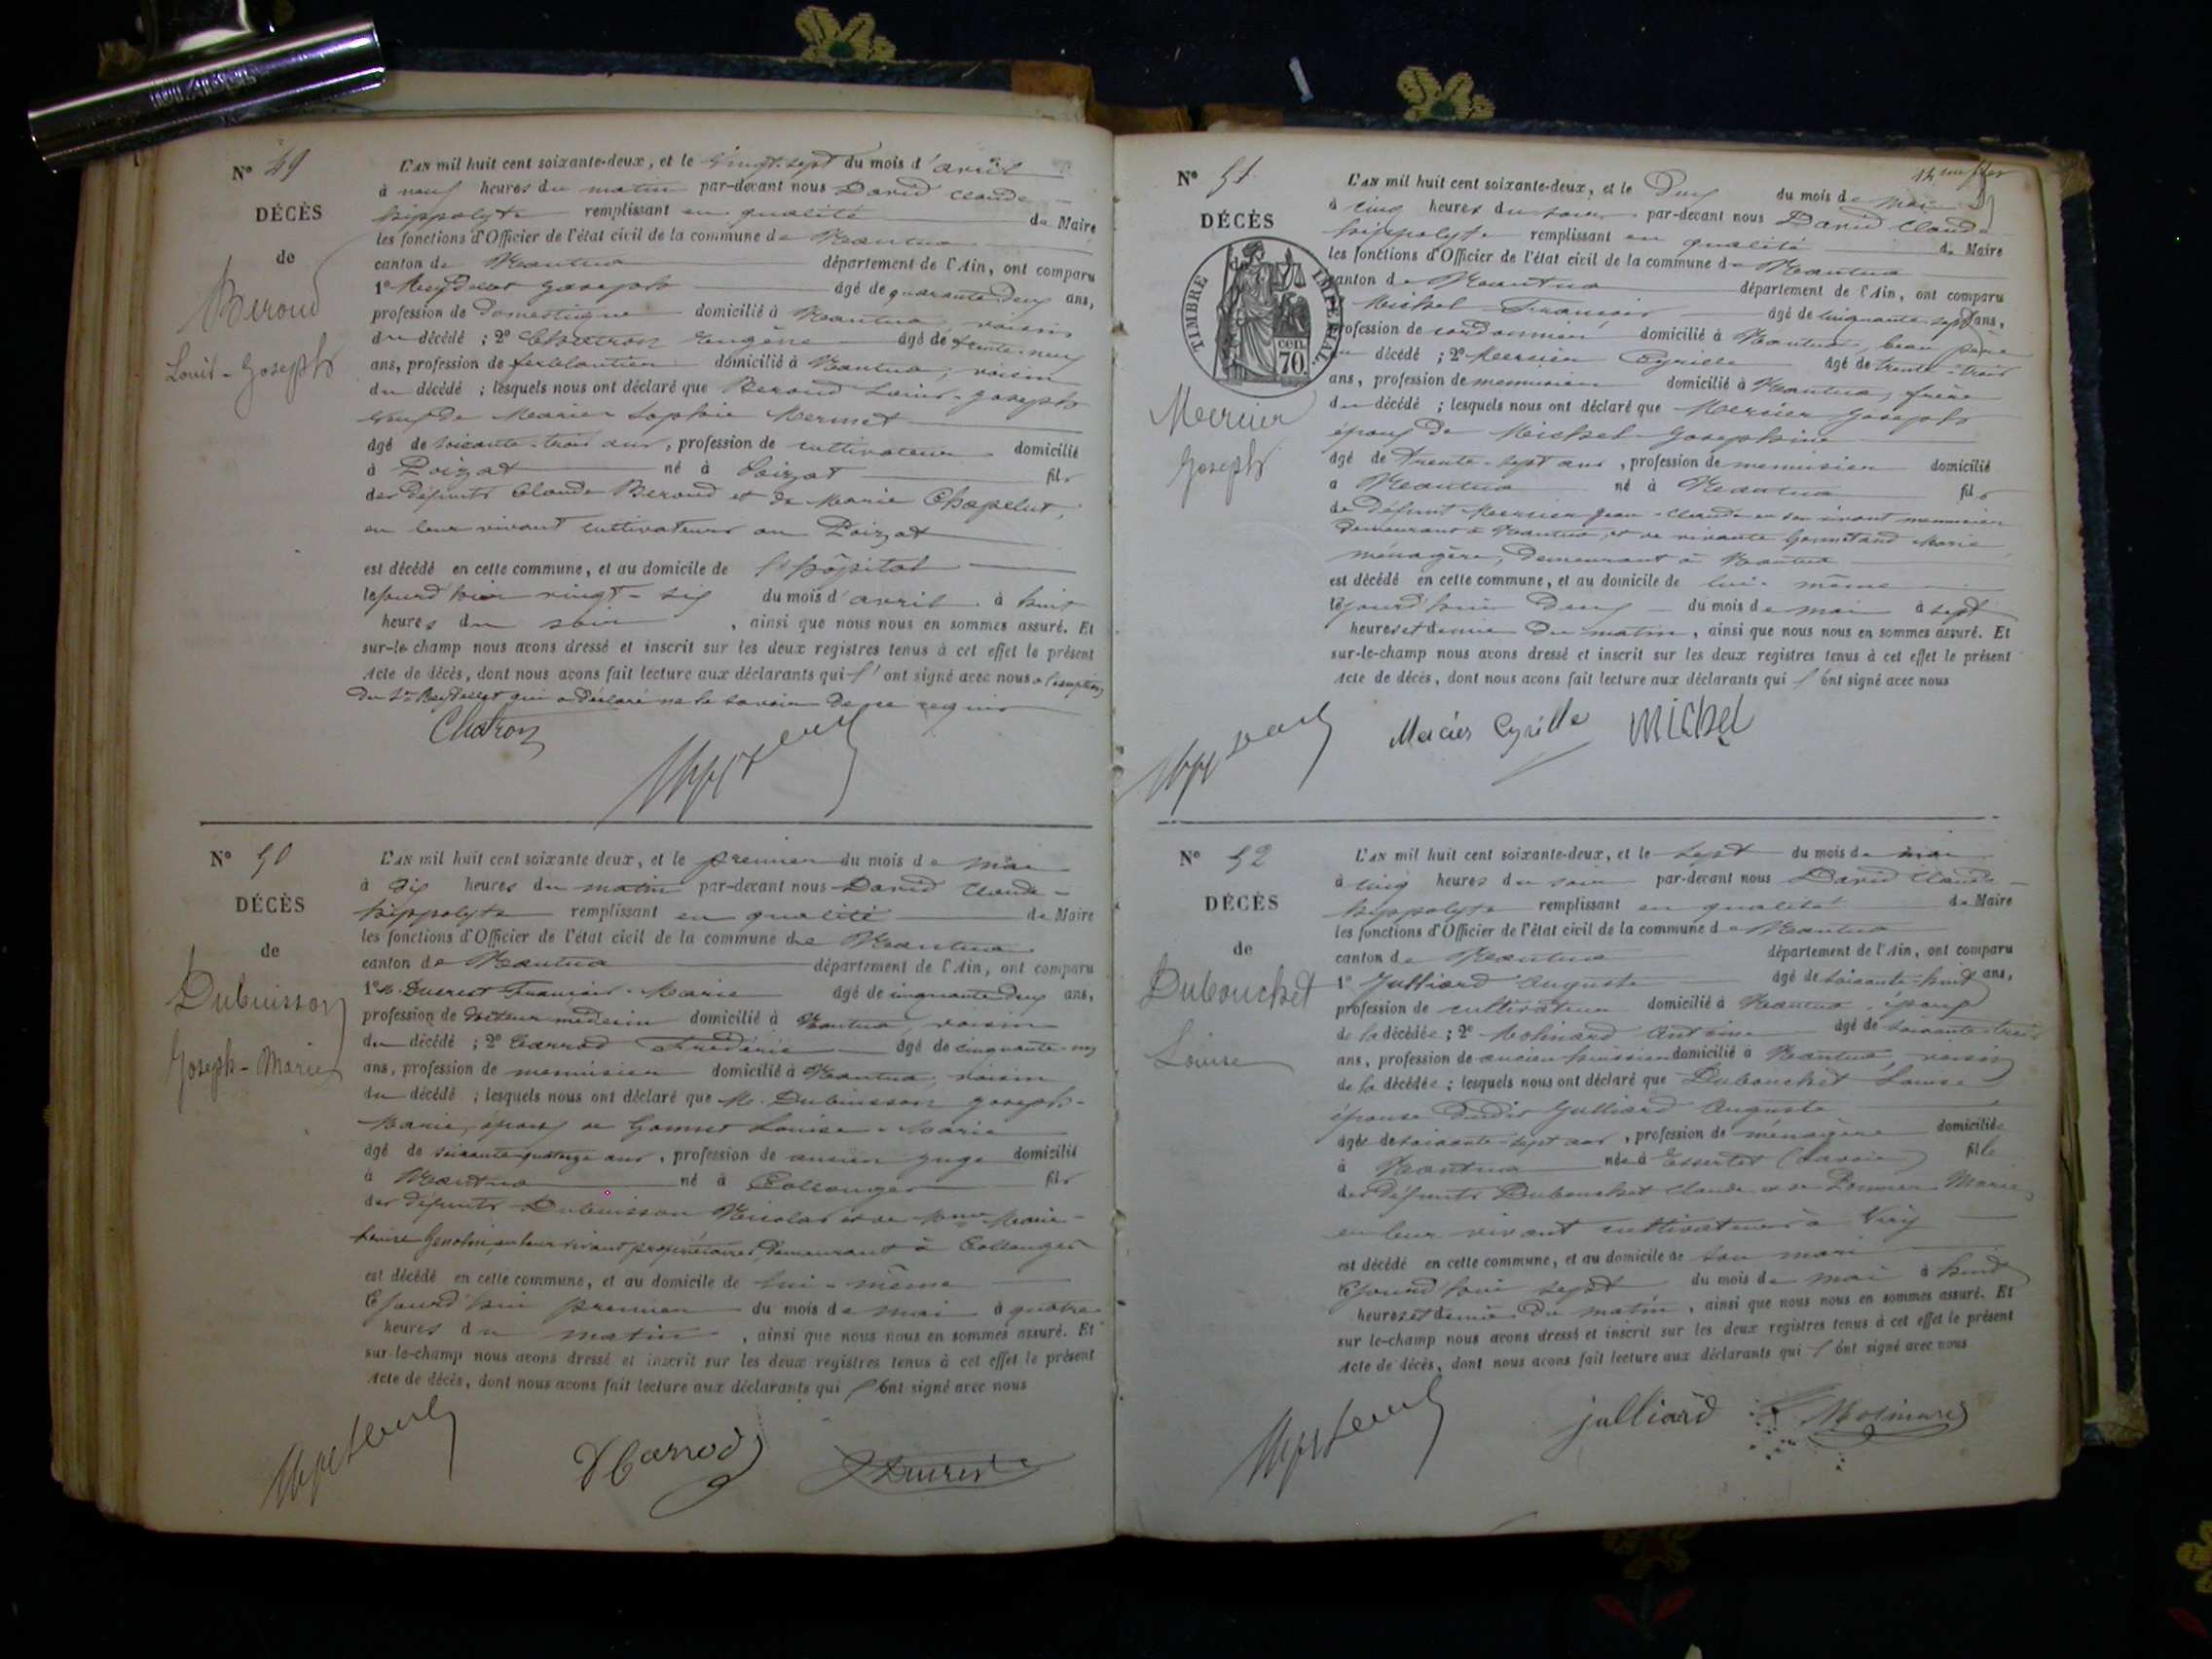 N° 49
DÉCÈS
de
Beroud
Louis-Joseph
L'an mil huit cent soixante-deux, et le vingt-sept du mois d'avril
à neuf heures du matin par-devant nous David Claude-
hippolyte remplissant en qualité de Maire
les fonctions d'Officier de l'état civil de la commune de Nantua
canton de Nantua département de l'Ain, ont comparu
1° Joseph âgé de quarante deux ans,
profession de Domestique domicilié à Nantua, voisin
du décédé ; 2° Chatron Eugène âgé de trente-neuf
ans, profession de ferblantier domicilié à Nantua, voisin
du décédé ; lesquels nous ont déclaré que Beroud Louis-Joseph
veuf de Marie Sophie Mermet
âgé de soixante-trois ans, profession de cultivateur domicilié
à Poizat né à Poizat fils
des défunts Claude Beroud et de Marie Chapelut,
en leur vivant cultivateurs au Poizat
est décédé en cette commune, et au domicile de l'hôpital
le jourd'hier vingt-six du mois d'avril à huit
heures du soir, ainsi que nous nous en sommes assuré. Et
sur-le-champ nous avons dressé et inscrit sur les deux registres tenus à cet effet le présent
Acte de décès, dont nous avons fait lecture aux déclarants qui l'ont signé avec nous à l'exception
du Sr qui a déclaré ne le savoir de ce requis
Chatron
N° 50
DÉCÈS
de
Dubuisson
Joseph-Marie
L'an mil huit cent soixante deux, et le premier du mois de mai
à dix heures du matin par-devant nous David Claude-
hippolyte remplissant en qualité de Maire
les fonctions d'Officier de l'état civil de la commune de Nantua
canton de Nantua département de l'Ain, ont comparu
1° M. Ducrest François-Marie âgé de cinquante deux ans,
profession de Docteur médecin domicilié à Nantua, voisin
du décédé ; 2° Carrod Frédéric âgé de cinquante-un
ans, profession de menuisier domicilié à Nantua, voisin
du décédé ; lesquels nous ont déclaré que M. Dubuisson Joseph-
Marie, époux de Gomet Louise-Marie
âgé de soixante-quatorze ans, profession de ancien juge domicilié
à Nantua né à Collonges fils
des défunts Dubuisson Nicolas et de Mme Marie-
Louise Genolin, en leur vivant propriétaires, demeurant à Collonges
est décédé en cette commune, et au domicile de lui-même
Cejourd'hui premier du mois de mai à quatre
heures du matin, ainsi que nous nous en sommes assuré. Et
sur-le-champ nous avons dressé et inscrit sur les deux registres tenus à cet effet le présent
Acte de décès, dont nous avons fait lecture aux déclarants qui l'ont signé avec nous
Carrod Ducrest
N° 51
DÉCÈS
de
TIMBRE IMPERIAL
70 cen.
Mercier
Joseph
L'an mil huit cent soixante-deux, et le Deux du mois de mai
à cinq heures du soir par-devant nous David Claude-
hippolyte remplissant en qualité de Maire
les fonctions d'Officier de l'état civil de la commune de Nantua
canton de Nantua département de l'Ain, ont comparu
Michel François âgé de cinquante-sept ans,
profession de cordonnier domicilié à Nantua, beau père
du décédé ; 2° Mercier Cyrille âgé de trente-trois
ans, profession de menuisier domicilié à Nantua, frère
du décédé ; lesquels nous ont déclaré que Mercier Joseph
époux de Michel Joséphine
âgé de trente-sept ans, profession de menuisier domicilié
à Nantua né à Nantua fils
de défunt Mercier Jean-Claude en son vivant menuisier
demeurant à Nantua, et de vivante Marie
ménagère, demeurant à Nantua
est décédé en cette commune, et au domicile de lui-même
cejourd'hui Deux du mois de mai à sept
heures et demie du matin, ainsi que nous nous en sommes assuré. Et
sur-le-champ nous avons dressé et inscrit sur les deux registres tenus à cet effet le présent
Acte de décès, dont nous avons fait lecture aux déclarants qui l'ont signé avec nous
Mercier Cyrille Michel
N° 52
DÉCÈS
de
Dubouchet
Louise
L'an mil huit cent soixante-deux, et le sept du mois de mai
à cinq heures du soir par-devant nous David Claude-
hippolyte remplissant en qualité de Maire
les fonctions d'Officier de l'état civil de la commune de Nantua
canton de Nantua département de l'Ain, ont comparu
1° Julliard Auguste âgé de soixante-huit ans,
profession de cultivateur domicilié à Nantua, époux
de la décédée ; 2° Molinard Antoine âgé de soixante-trois
ans, profession de ancien huissier domicilié à Nantua, voisin
de la décédée ; lesquels nous ont déclaré que Dubouchet Louise
épouse dudit Julliard Auguste
âgée de soixante-sept ans, profession de ménagère domiciliée
à Nantua née à Essertet (Savoie) fille
des défunts Dubouchet Claude et de Marie,
en leur vivant cultivateurs à Viry
est décédé en cette commune, et au domicile de son mari
Cejourd'hui sept du mois de mai à huit
heures et demie du matin, ainsi que nous nous en sommes assuré. Et
sur-le-champ nous avons dressé et inscrit sur les deux registres tenus à cet effet le présent
Acte de décès, dont nous avons fait lecture aux déclarants qui l'ont signé avec nous
julliard Molinard